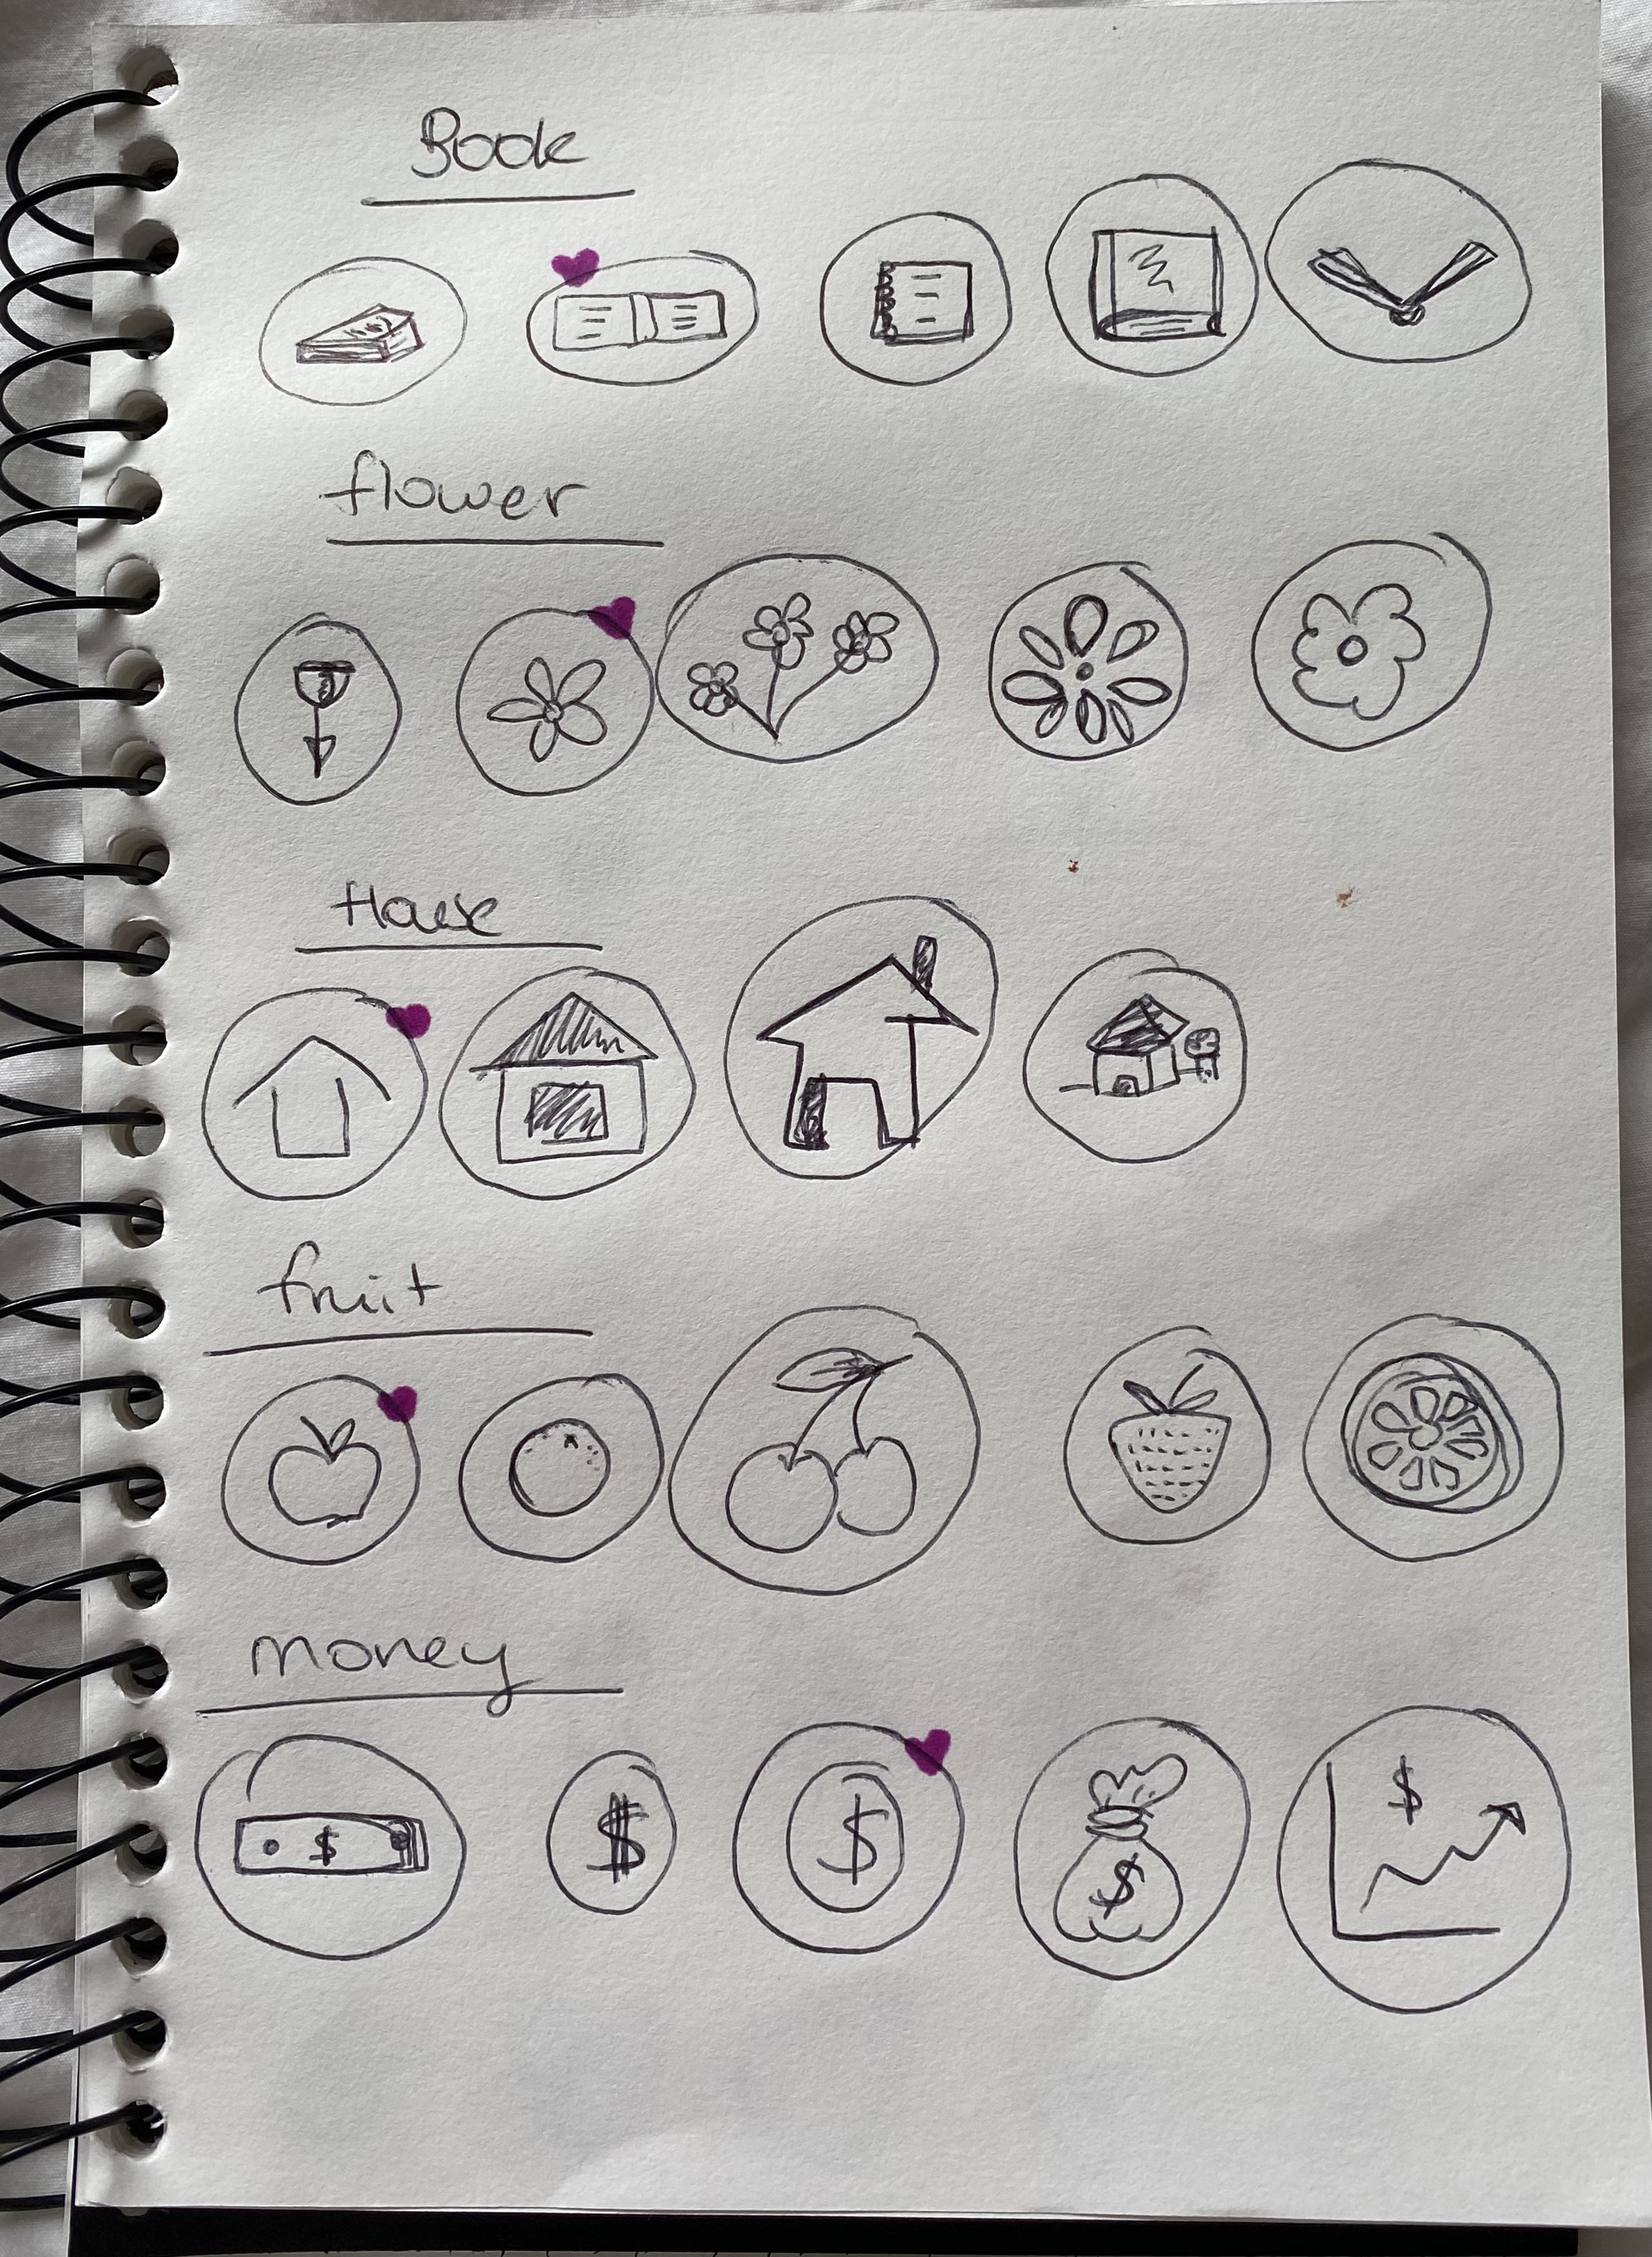 Book
flower
House
fruit
money
$ $ $ $ $